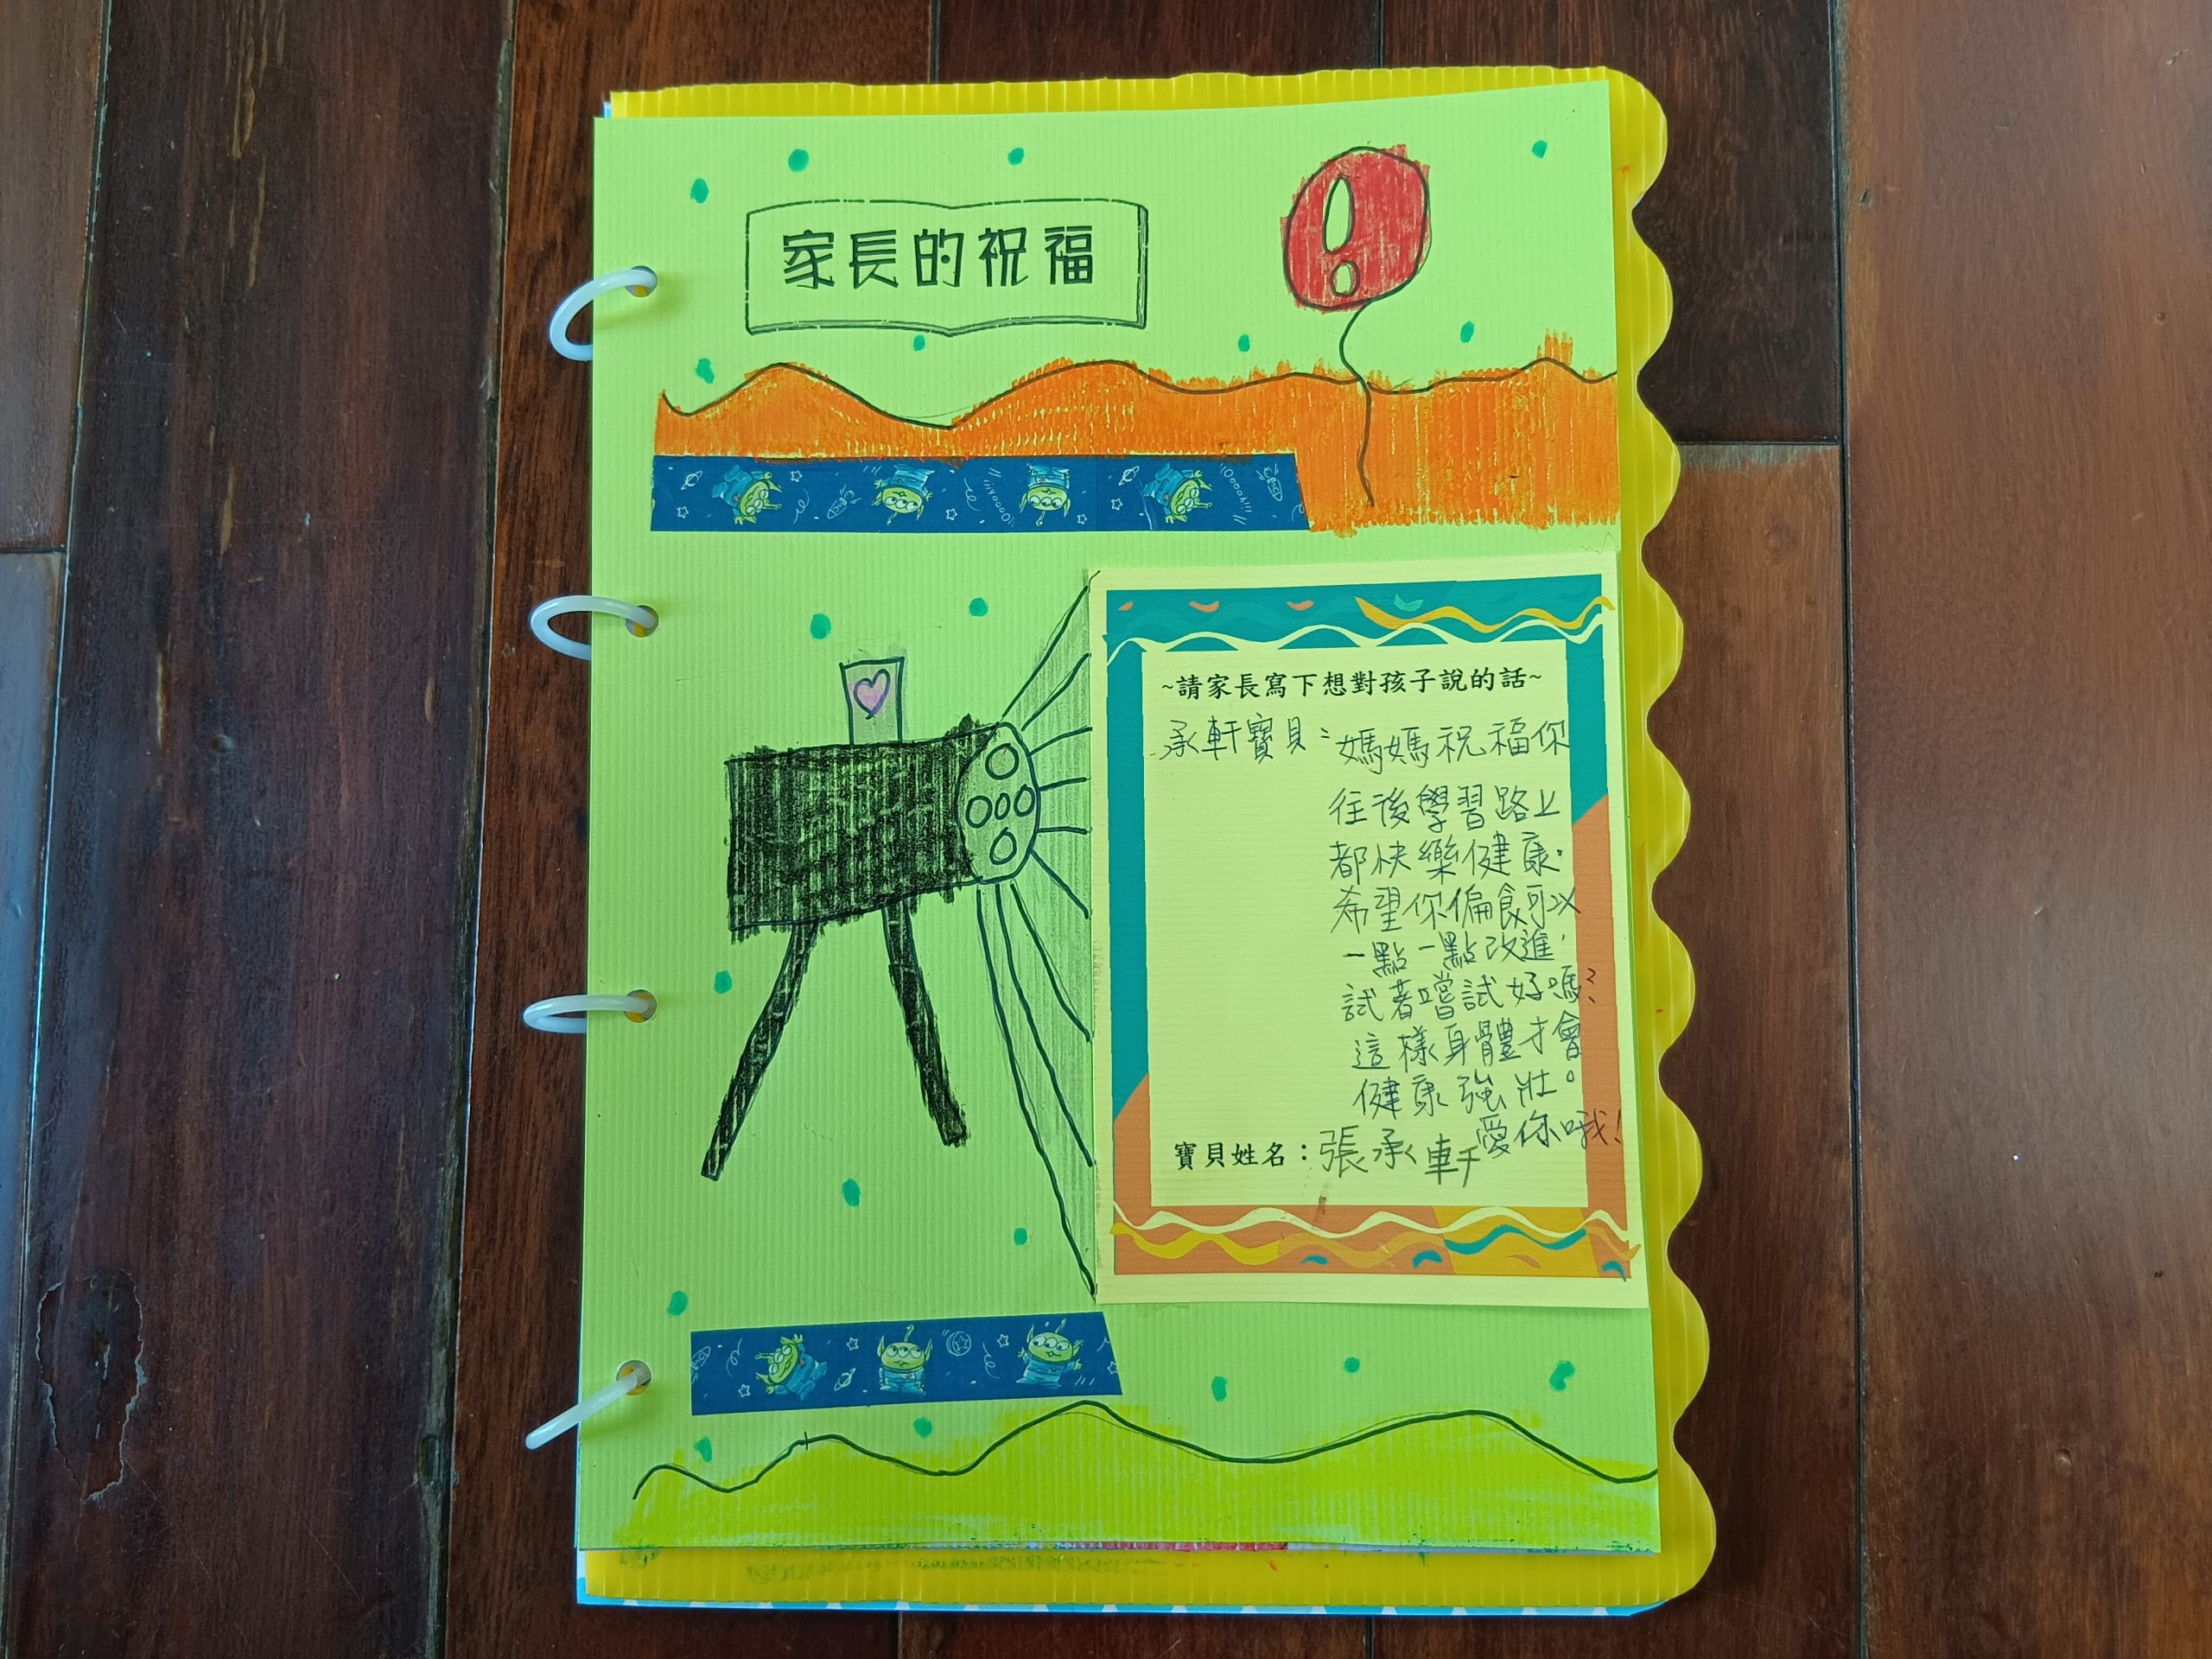 家長的祝福
~請家長寫下想對孩子說的話~
承軒寶貝：媽媽祝福你
往後學習路上
都快樂健康.
希望你偏食可以
一點一點改進,
試著嚐試好嗎?
這樣身體才會
健康強壯。
愛你哦!
寶貝姓名：張承軒